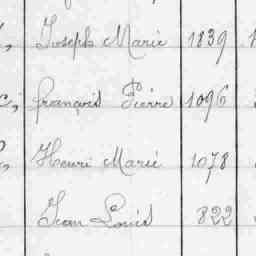 Joseph Marie 1839
françois Pierre 1096
Henri Marie 1078
Jean Louis 822